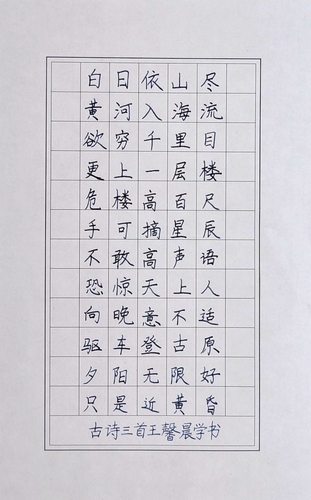 白日依山尽
黄河入海流
欲穷千里目
更上一层楼
危楼高百尺
手可摘星辰
不敢高声语
恐惊天上人
向晚意不适
驱车登古原
夕阳无限好
只是近黄昏
古诗三首王馨晨学书